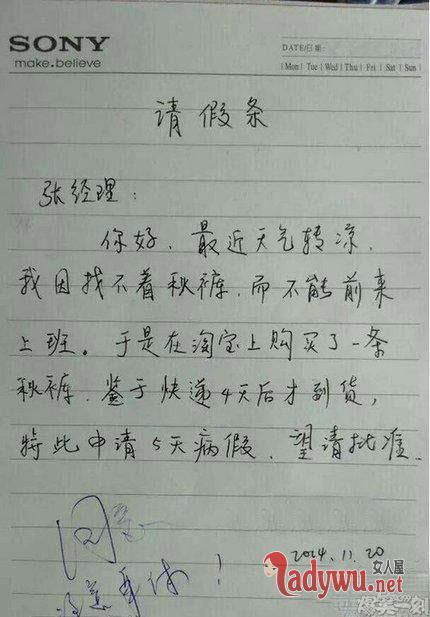 SONY
make.believe
DATE/日期:
|Mon|Tue|Wed|Thu|Fri|Sat|Sun|
请假条
张经理:
你好，最近天气转凉，
我因找不着秋裤，而不能前来
上班。于是在淘宝上购买了一条
秋裤，鉴于快递4天后才到货，
特此申请5天病假，望请批准。
同意
注意身体！
2014.11.20
女人屋
Ladywu.net
爆笑一刻